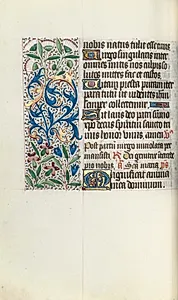 nobis natus tulit esse tuus
Virgo singularis inter
omnes mitis nos culpis so
lutos mites fac et castos
Vitam presta puram iter
para tutum ut videntes ihm
semper colletemur
Sit laus deo patri summo
xpo decus spiritui sancto tri
nus honor unus amen
Post partum virgo inviolata per
mansisti R Dei genitrix interce
pro nobis a Sca maria ps
Magnificat anima
mea dominum